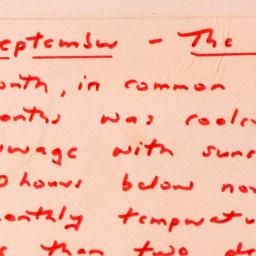 eptember - The
onth, in common
onths was cooler
with suns
0 hours below nor
onthly temperatu
than two